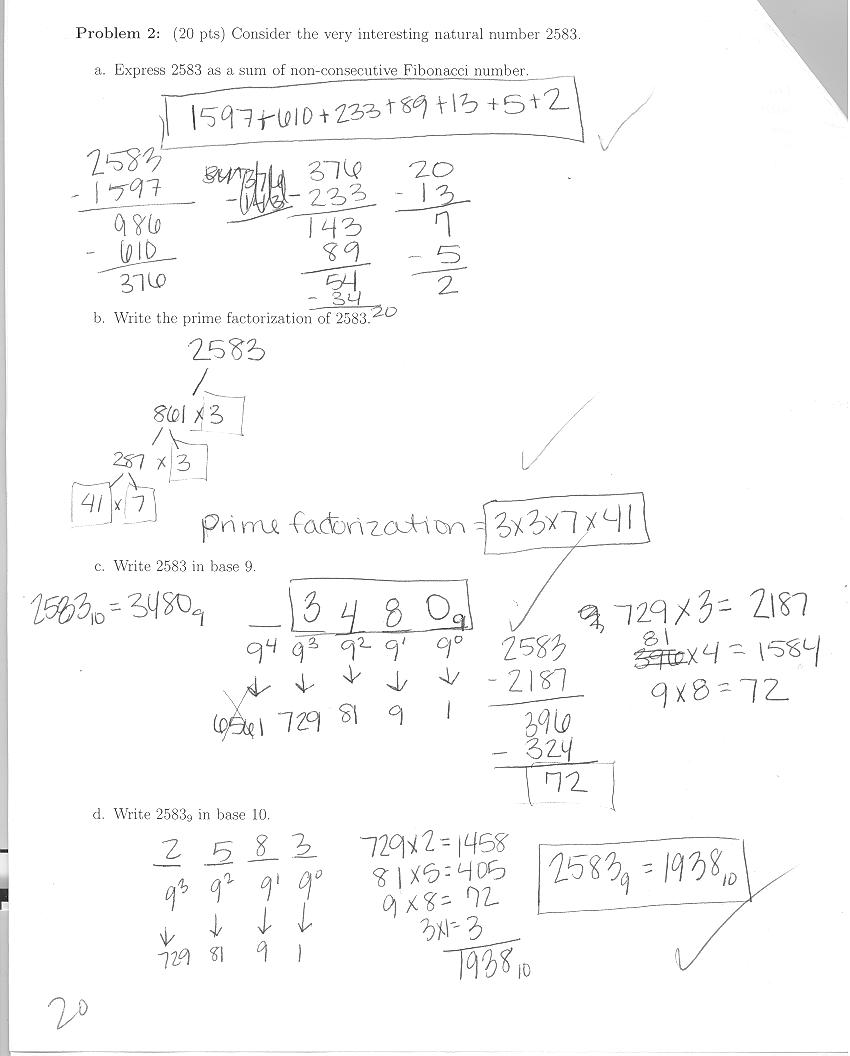 Problem 2: (20 pts) Consider the very interesting natural number 2583.
a. Express 2583 as a sum of non-consecutive Fibonacci number.
1597+610+233+89+13+5+2
2583
- 1597
986
- 610
376
376
- 233
143
89
54
- 34
20
20
- 13
7
- 5
2
b. Write the prime factorization of 2583.
2583
861 x 3
287 x 3
41 x 7
prime factorization = 3x3x7x41
c. Write 2583 in base 9.
2583₁₀ = 3480₉
3 4 8 0₉
9⁴ 9³ 9² 9¹ 9⁰
6561 729 81 9 1
2583
- 2187
396
- 324
72
729 x 3 = 2187
81 x 4 = 1584
9 x 8 = 72
d. Write 2583₉ in base 10.
2 5 8 3
9³ 9² 9¹ 9⁰
729 81 9 1
729x2=1458
81x5=405
9x8=72
3x1=3
1938₁₀
2583₉ = 1938₁₀
20